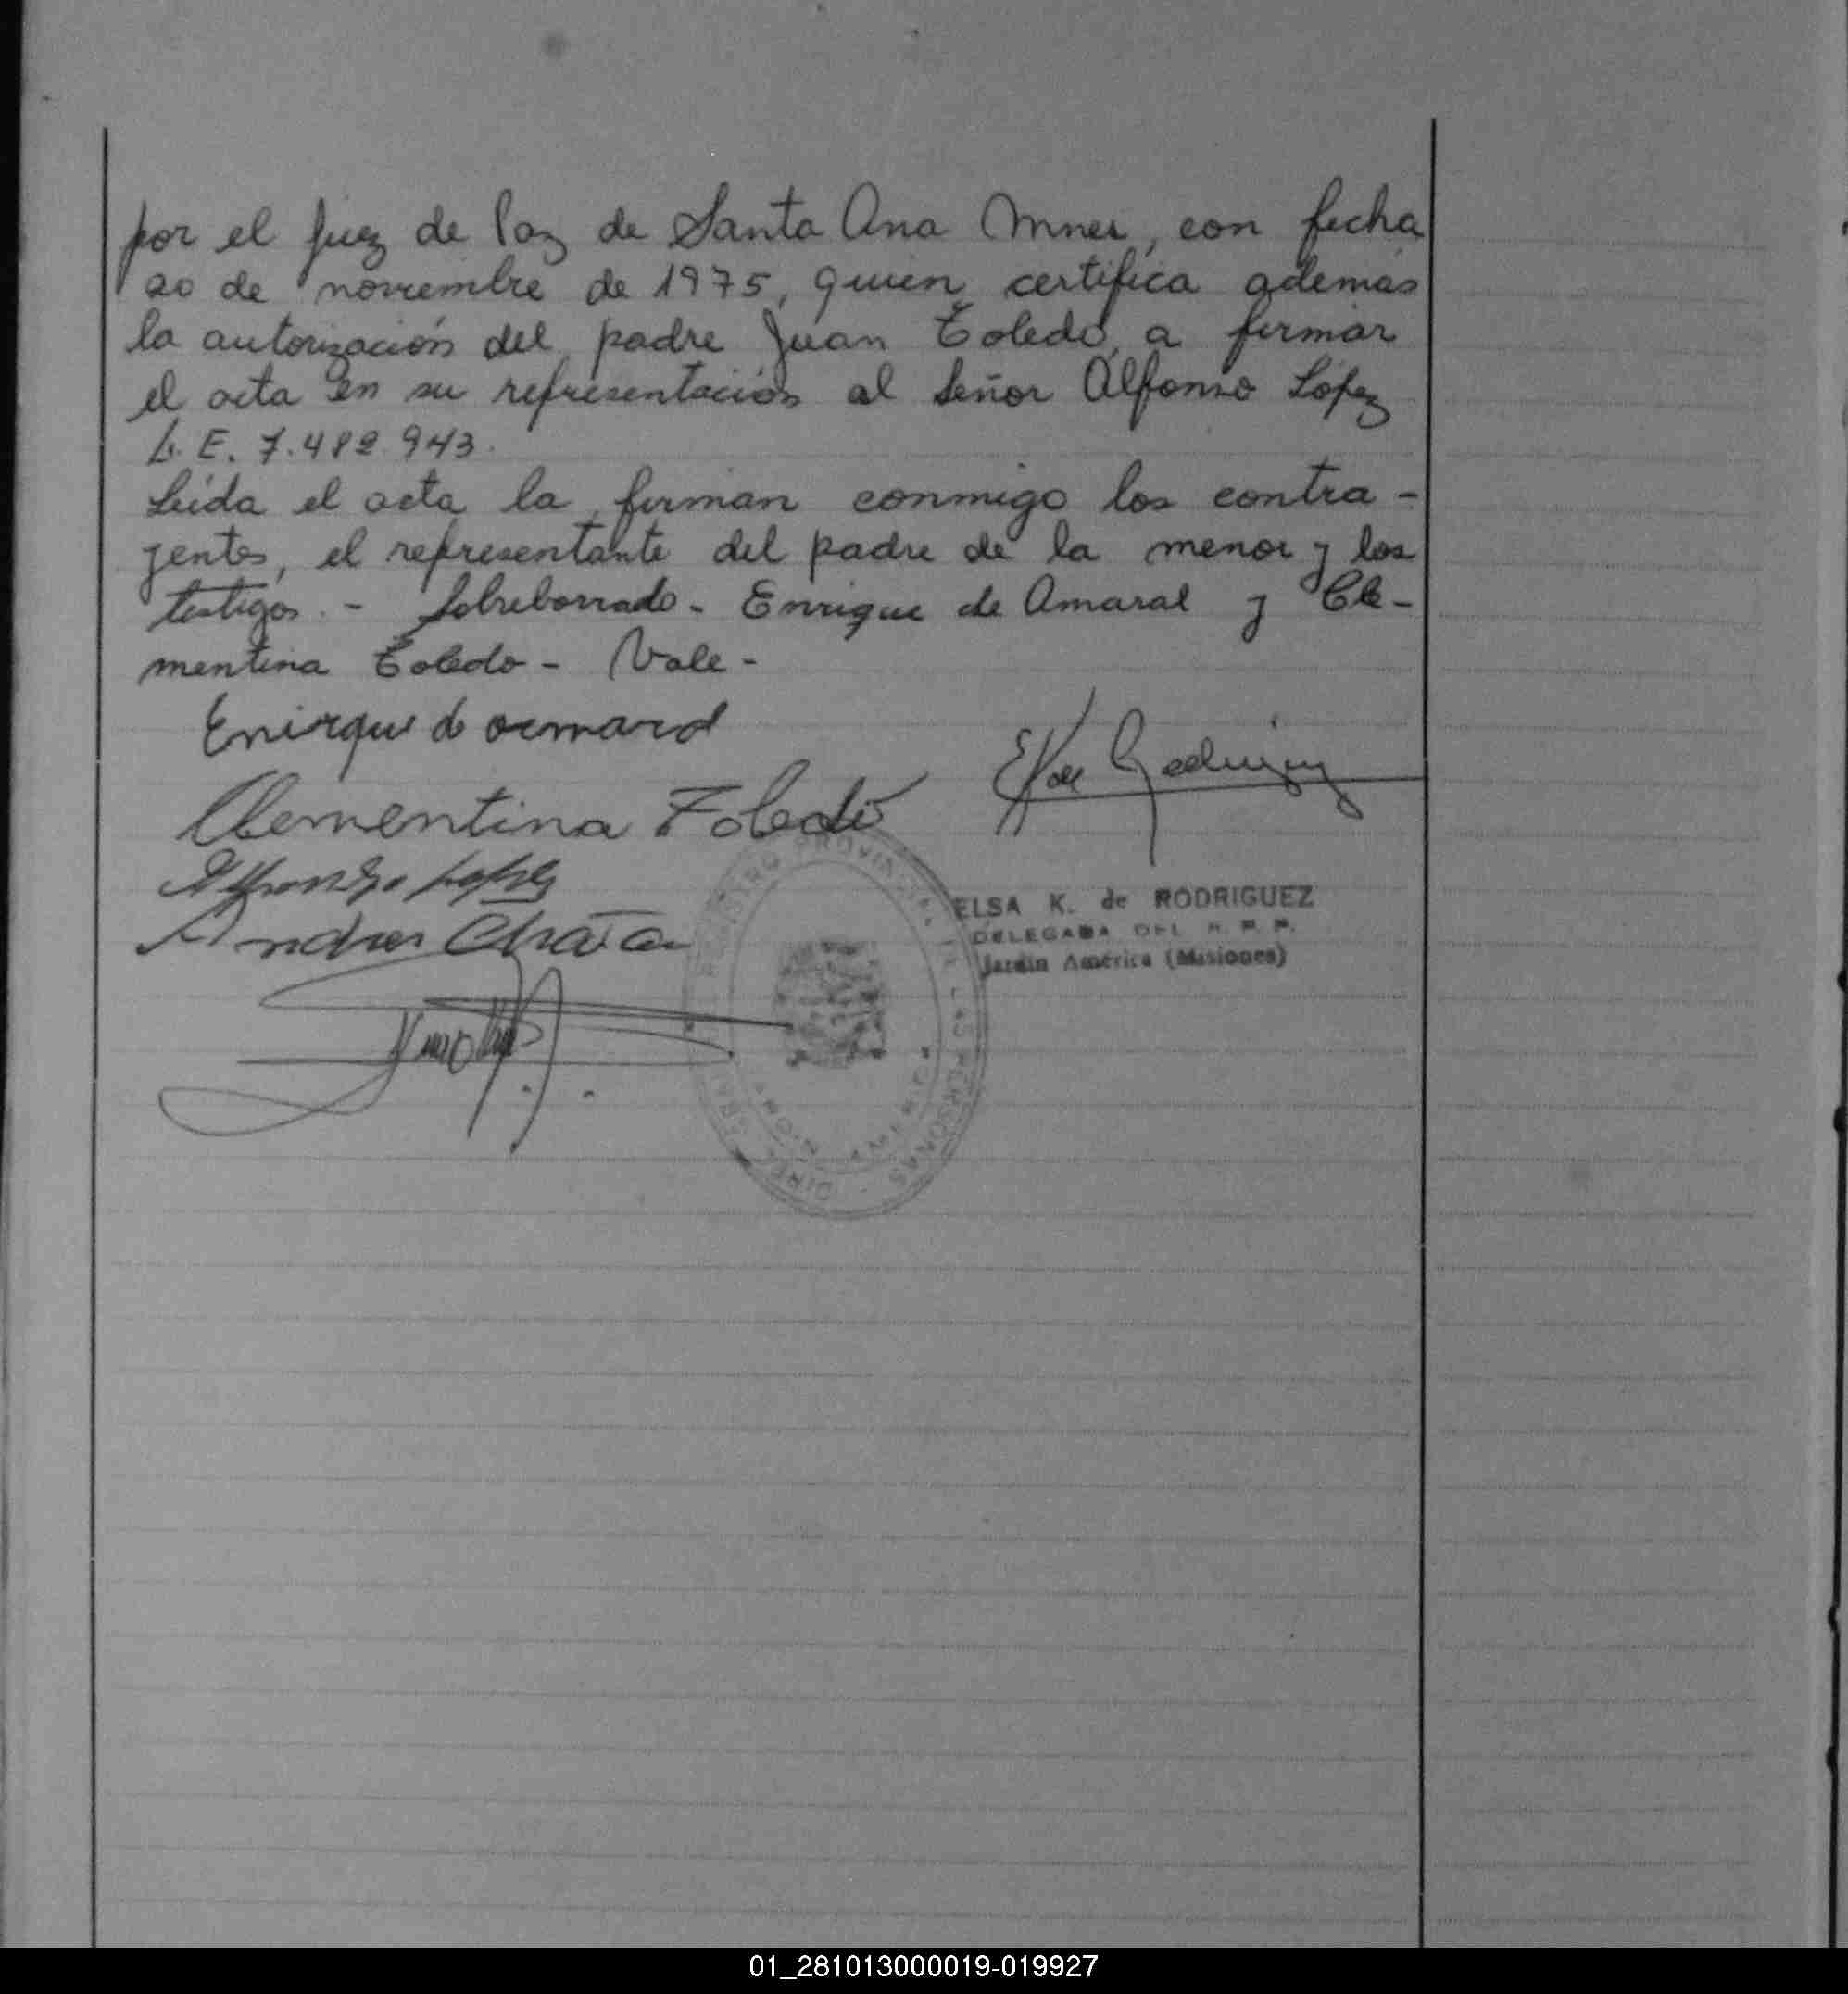 por el Juez de Paz de Santa Ana Mnes, con fecha
20 de noviembre de 1975, quien certifica además
la autorización del padre Juan Toledo, a firmar
el acta en su representación al Señor Alfonso López
L. E. 7.482.943.
Leída el acta la firman conmigo los contra-
yentes, el representante del padre de la menor y los
testigos. - Sobreborrado - Enrique de Amaral y Cle-
mentina Toledo - Vale -
Enirque de
Clementina Toledo
Lopez
ELSA K. de RODRIGUEZ
DELEGADA DEL R. P. P.
Jardín América (Misiones)
REGISTRO PROVINCIAL DE LAS PERSONAS
01_281013000019-019927